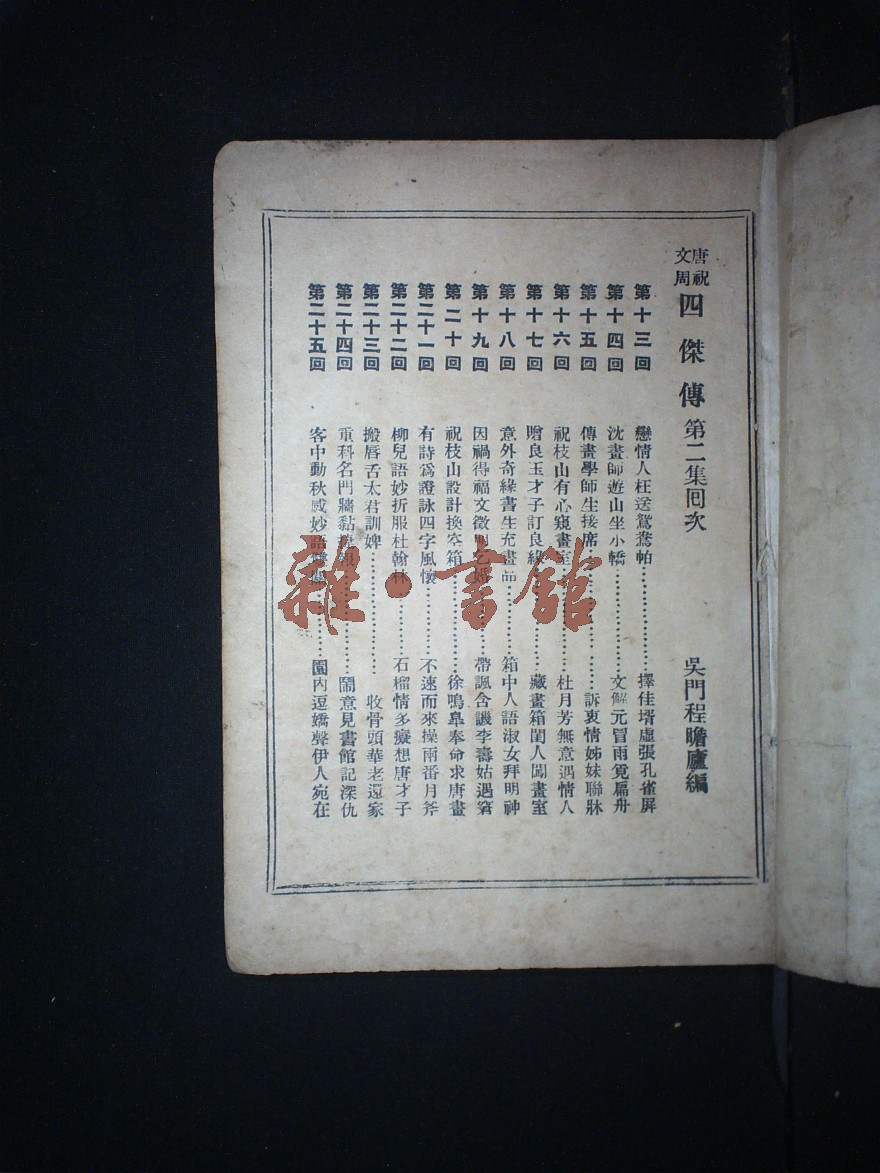 唐祝文周四傑傳第二集囘次
吳門程瞻廬編
第十三回 戀情人枉送鴛鴦帕………………擇佳壻虛張孔雀屏
第十四回 沈畫師遊山坐小轎………………文解元冒雨覓扁舟
第十五回 傳畫學師生接席………………訴衷情姊妹聯牀
第十六回 祝枝山有心窺畫室………………杜月芳無意遇情人
第十七回 贈良玉才子訂良緣………………藏畫箱閨人闖畫室
第十八回 意外奇緣書生充畫品………………箱中人語淑女拜明神
第十九回 因禍得福文徵明乞婚………………帶諷含譏李壽姑遇窘
第二十回 祝枝山設計換空箱………………徐鳴皋奉命求唐畫
第二十一回 有詩爲證詠四字風懷………………不速而來操兩番月斧
第二十二回 柳兒語妙折服杜翰林………………石榴情多癡想唐才子
第二十三回 搬唇舌太君訓婢………………收骨頭華老還家
第二十四回 重科名門牆黏捷報………………鬧意見書館記深仇
第二十五回 客中動秋感妙語………………園內逗嬌聲伊人宛在
雜·書館